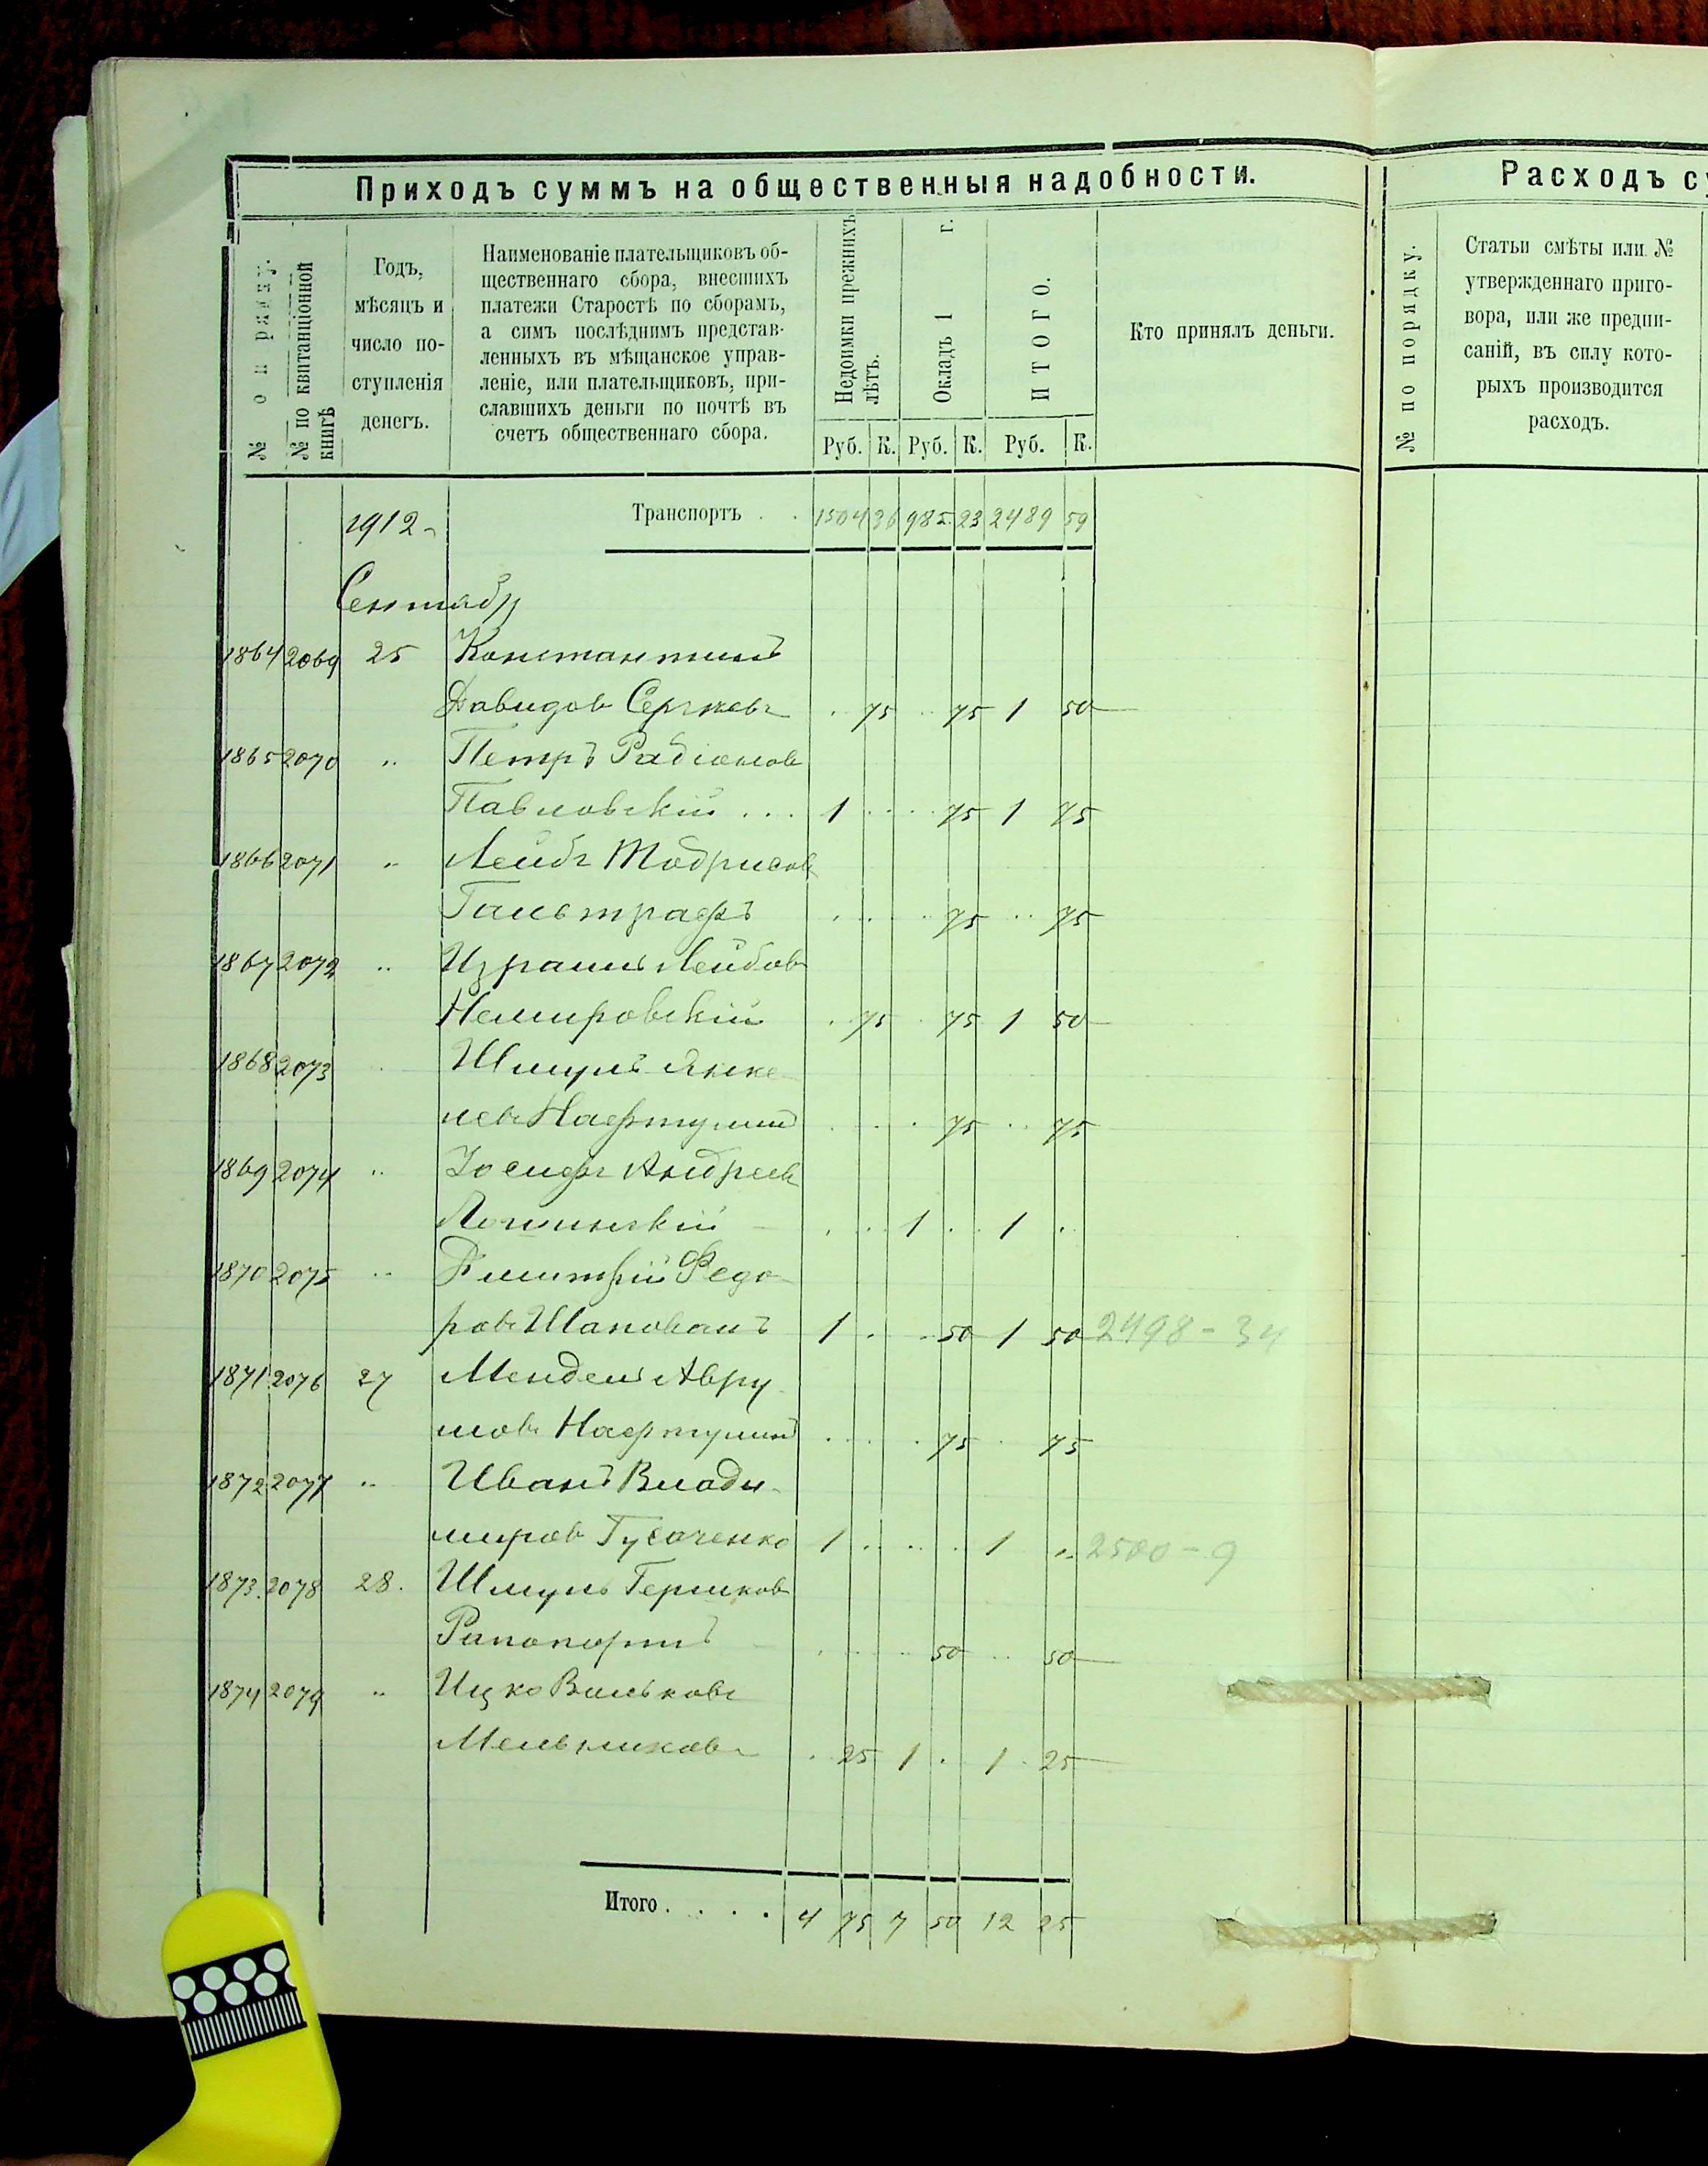 Приходъ суммъ на общественныя надобности.
№ по порядку.
№ по квитанціонной книгѣ
Годъ, мѣсяцъ и число поступленія денегъ.
Наименованіе плательщиковъ об-
щественнаго сбора, внесшихъ
платежи Старостѣ по сборамъ,
а симъ послѣднимъ представ-
ленныхъ въ мѣщанское управ-
леніе, или плательщиковъ, при-
славшихъ деньги по почтѣ въ
счетъ общественнаго сбора.
Недоимки прежнихъ лѣтъ.
Окладъ 1 г.
ИТОГО.
Кто принялъ деньги.
Руб. К. Руб. К. Руб. К.
1912 Транспортъ . . 1504 36 985 23 2489 59
Сентябр
1864 2069 25 Константинъ
Давидов . 75 . . 75 1 50
1865 2070 " Петръ Радіонов
Павловскій . . . 1 . . . . 75 1 75
1866 2071 " Лейбъ Тодрисов
Гальтрафъ . . . . 75 . . 75
1867 2072 " Израиль Лейбов
Немировскій . 75 . 75 1 50
1868 2073 Шмуль Янке
лев Нафтулинъ . . . . 75 . . 75
1869 2074 " Іосифъ Андреев
. . . 1 . . 1 .
1870 2075 " Дмитрій Федо
ров Шаповалъ 1 . . 50 1 50 2498 - 34
1871 2076 27 Мендель Авру
мов Нафтулинъ . . . . 75 . 75
1872 2077 " Иванъ Влади
миров Гусаченко 1 . . . . . 1 " 2500 - 9
1873. 2078 28. Шмуль Гершков
Рапопортъ . . . . . 50 . . 50
1874 2079 " Ицко Вольков
Мельников . 25 1 . 1 25
Итого . . . . 4 75 7 50 12 25
Расходъ су
№ по порядку.
Статьи смѣты или №
утвержденнаго приго-
вора, или же предпи-
саній, въ силу кото-
рыхъ производится
расходъ.